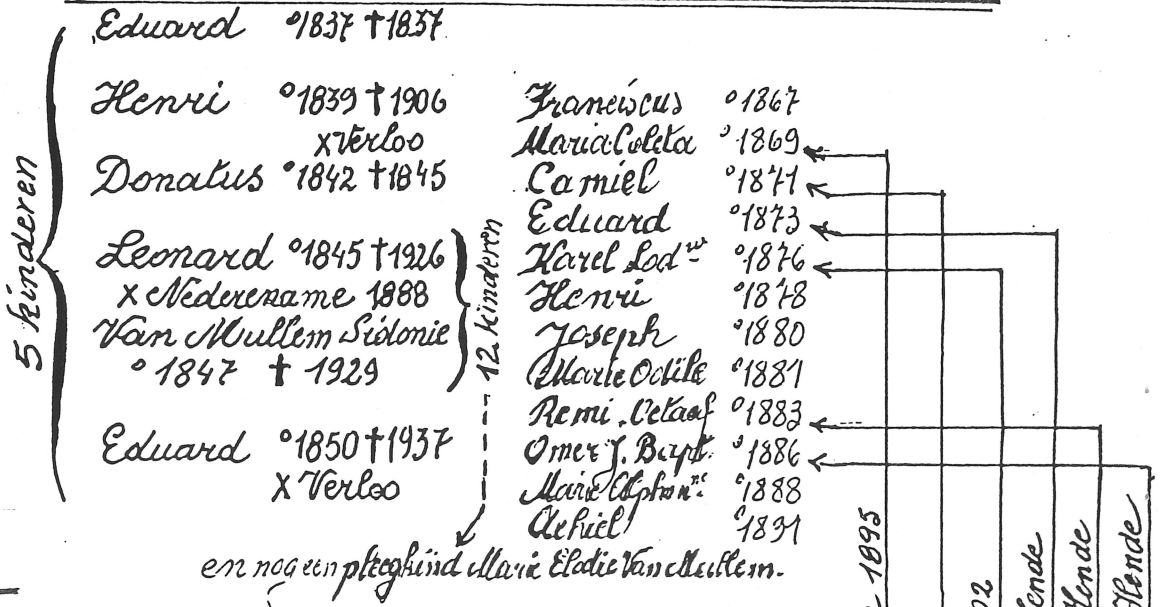 5 kinderen
Eduard °1837 †1837
Henri °1839 †1906
x Verloo
Donatus °1842 †1845
Leonard °1845 †1926
x Nederename 1888
Van Mullem Sidonie
° 1847 † 1929
Eduard °1850 †1937
x Verloo
12 kinderen
Franciscus °1867
Maria Coleta °1869
Camiel °1871
Eduard °1873
Karel Lodw °1876
Henri °1878
Joseph °1880
Marie Odile °1881
Remi Octaaf °1883
Omer J. Bapt. °1886
Marie Alphonne °1888
Achiel °1891
en nog een pleegkind Marie Elodie Van Mullem.
1895